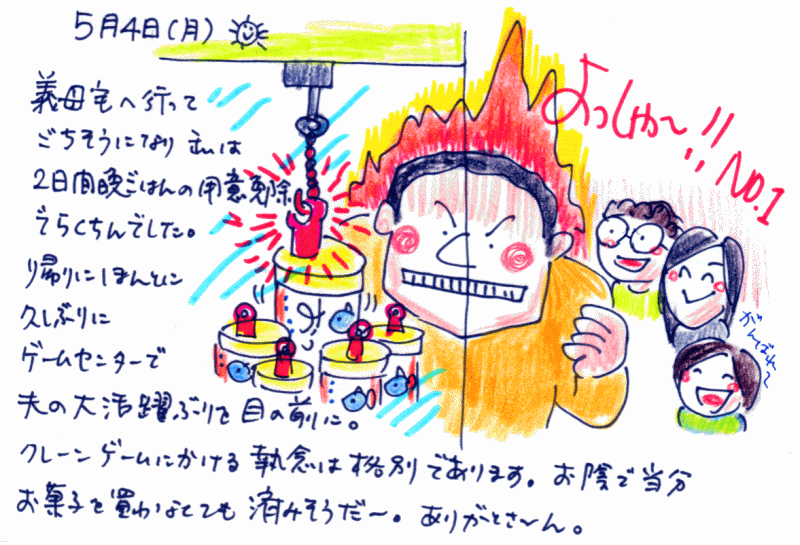 5月4日(月)
義母宅へ行って
ごちそうになり 私は
2日間晩ごはんの用意免除
でらくちんでした。
帰りにほんとに
久しぶりに
ゲームセンターで
夫の大活躍ぶりを目の前に。
クレーンゲームにかける執念は格別であります。お陰で当分
お菓子を買わなくても済みそうだ〜。ありがとさ〜ん。
よっしゃ〜!!
NO.1
がんばれ〜